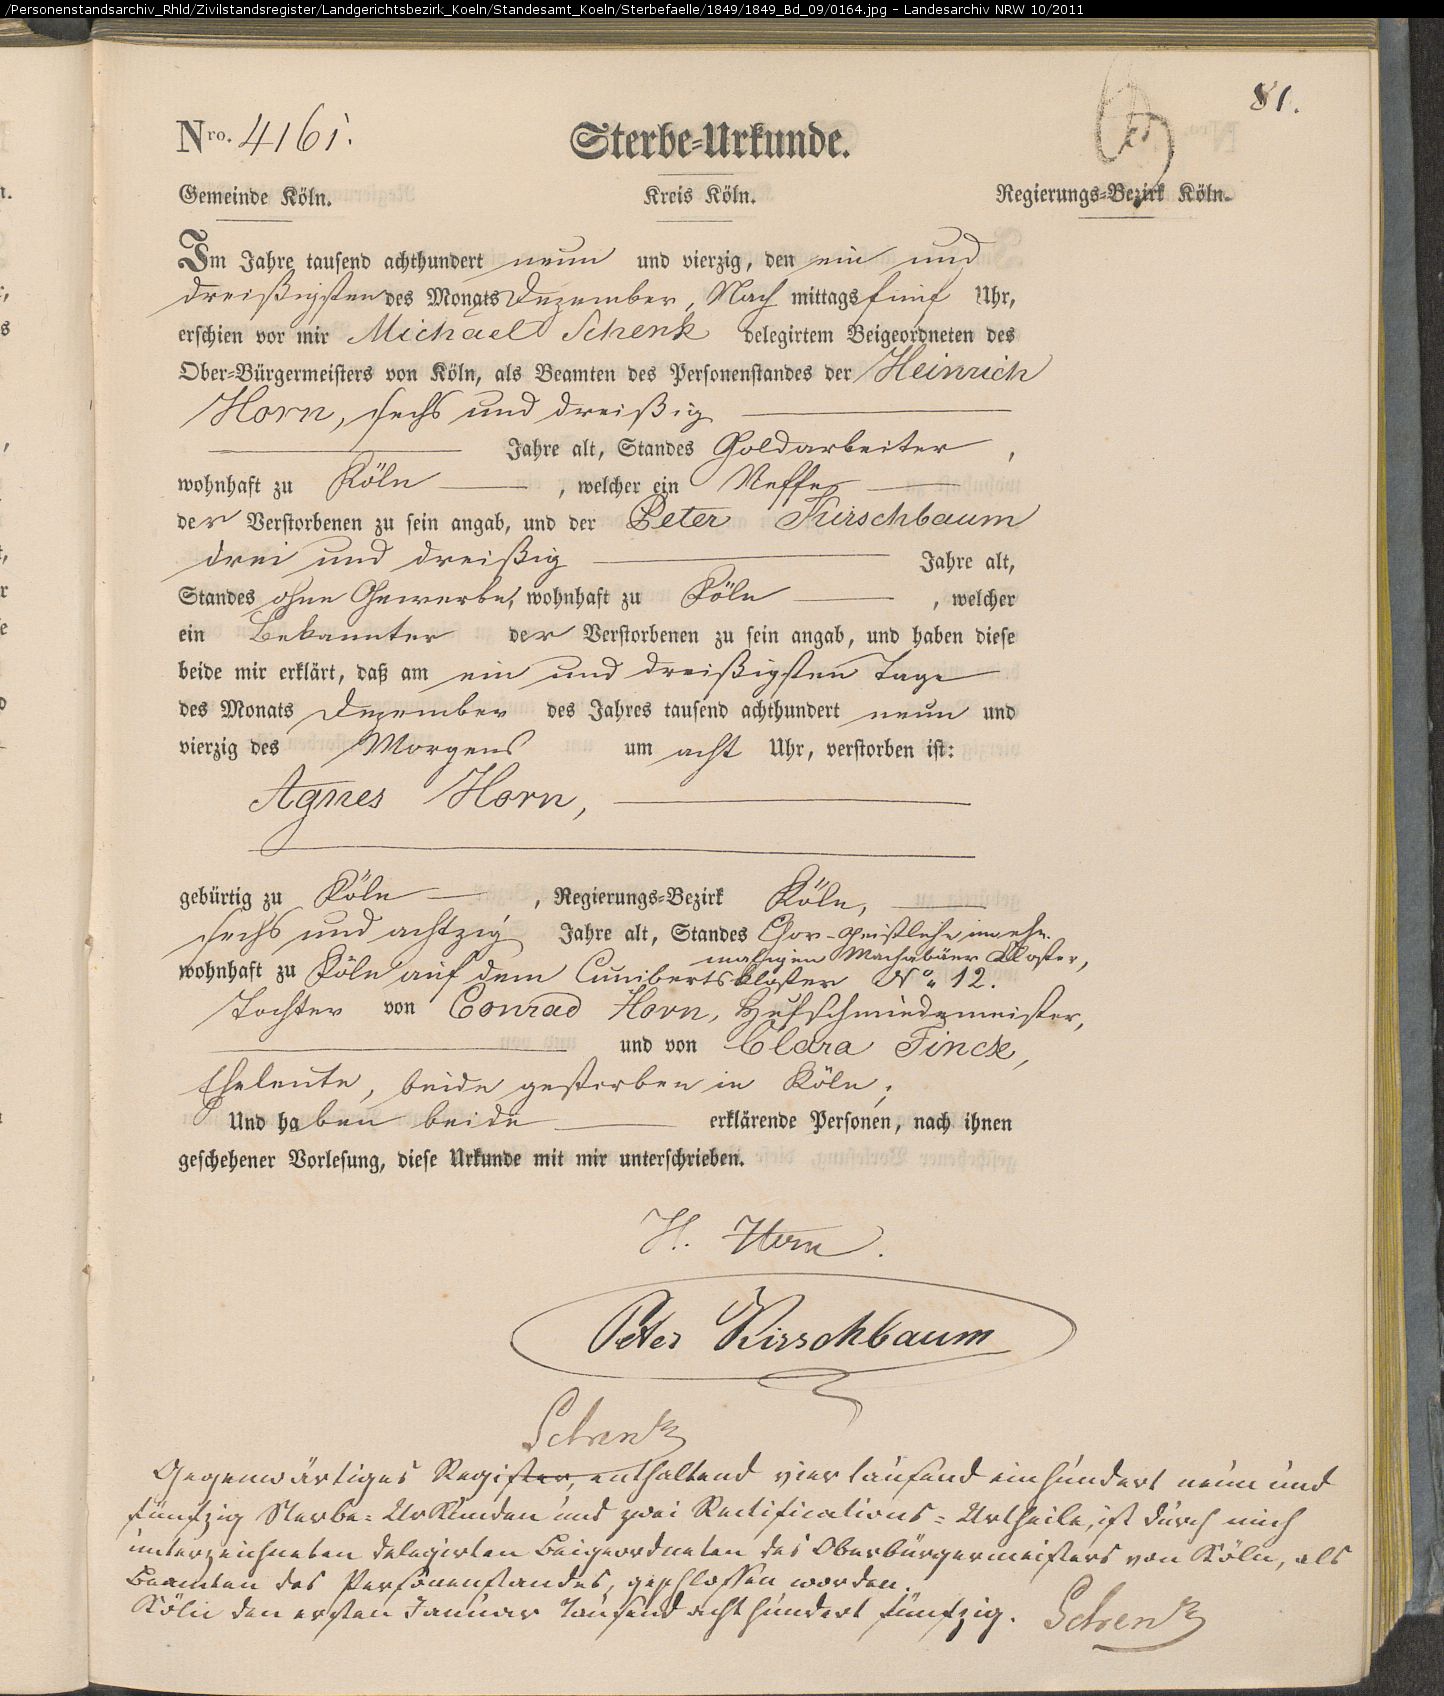 /Personenstandsarchiv_Rhld/Zivilstandsregister/Landgerichtsbezirk_Koeln/Standesamt_Koeln/Sterbefaelle/1849/1849_Bd_09/0164.jpg - Landesarchiv NRW 10/2011
81.
Nro. 4161.
Sterbe-Urkunde.
Gemeinde Köln. Kreis Köln. Regierungs-Bezirk Köln.
Im Jahre tausend achthundert neun und vierzig, den ein und
dreißigsten des Monats Dezember, Nach mittags fünf Uhr,
erschien vor mir Michael Schenk delegirtem Beigeordneten des
Ober-Bürgermeisters von Köln, als Beamten des Personenstandes der Heinrich
Horn, sechs und dreißig
Jahre alt, Standes Goldarbeiter,
wohnhaft zu Köln, welcher ein Neffe
der Verstorbenen zu sein angab, und der Peter Kirschbaum
drei und dreißig Jahre alt,
Standes ohne Gewerbe, wohnhaft zu Köln, welcher
ein Bekannter der Verstorbenen zu sein angab, und haben diese
beide mir erklärt, daß am ein und dreißigsten Tage
des Monats Dezember des Jahres tausend achthundert neun und
vierzig des Morgens um acht Uhr, verstorben ist:
Agnes Horn,
gebürtig zu Köln, Regierungs-Bezirk Köln,
sechs und achtzig Jahre alt, Standes Chor-Geistliche im ehe-
maligen Machabäer Kloster,
wohnhaft zu Köln auf dem Cunibertskloster No 12.
Tochter von Conrad Horn, Hufschmiedemeister,
und von Clara Finck,
Eheleute, beide gestorben in Köln;
Und haben beide erklärende Personen, nach ihnen
geschehener Vorlesung, diese Urkunde mit mir unterschrieben.
H. Horn.
Peter Kirschbaum
Schenk
Gegenwärtiges Register, enthaltend vier tausend einhundert neun und
fünfzig Sterbe-Urkunden und zwei Rectifications-Urtheile, ist durch mich
unterzeichneten delegirten Beigeordneten des Oberbürgermeisters von Köln, als
Beamten des Personenstandes, geschlossen worden.
Köln den ersten Januar Tausend acht hundert fünfzig. Schenk